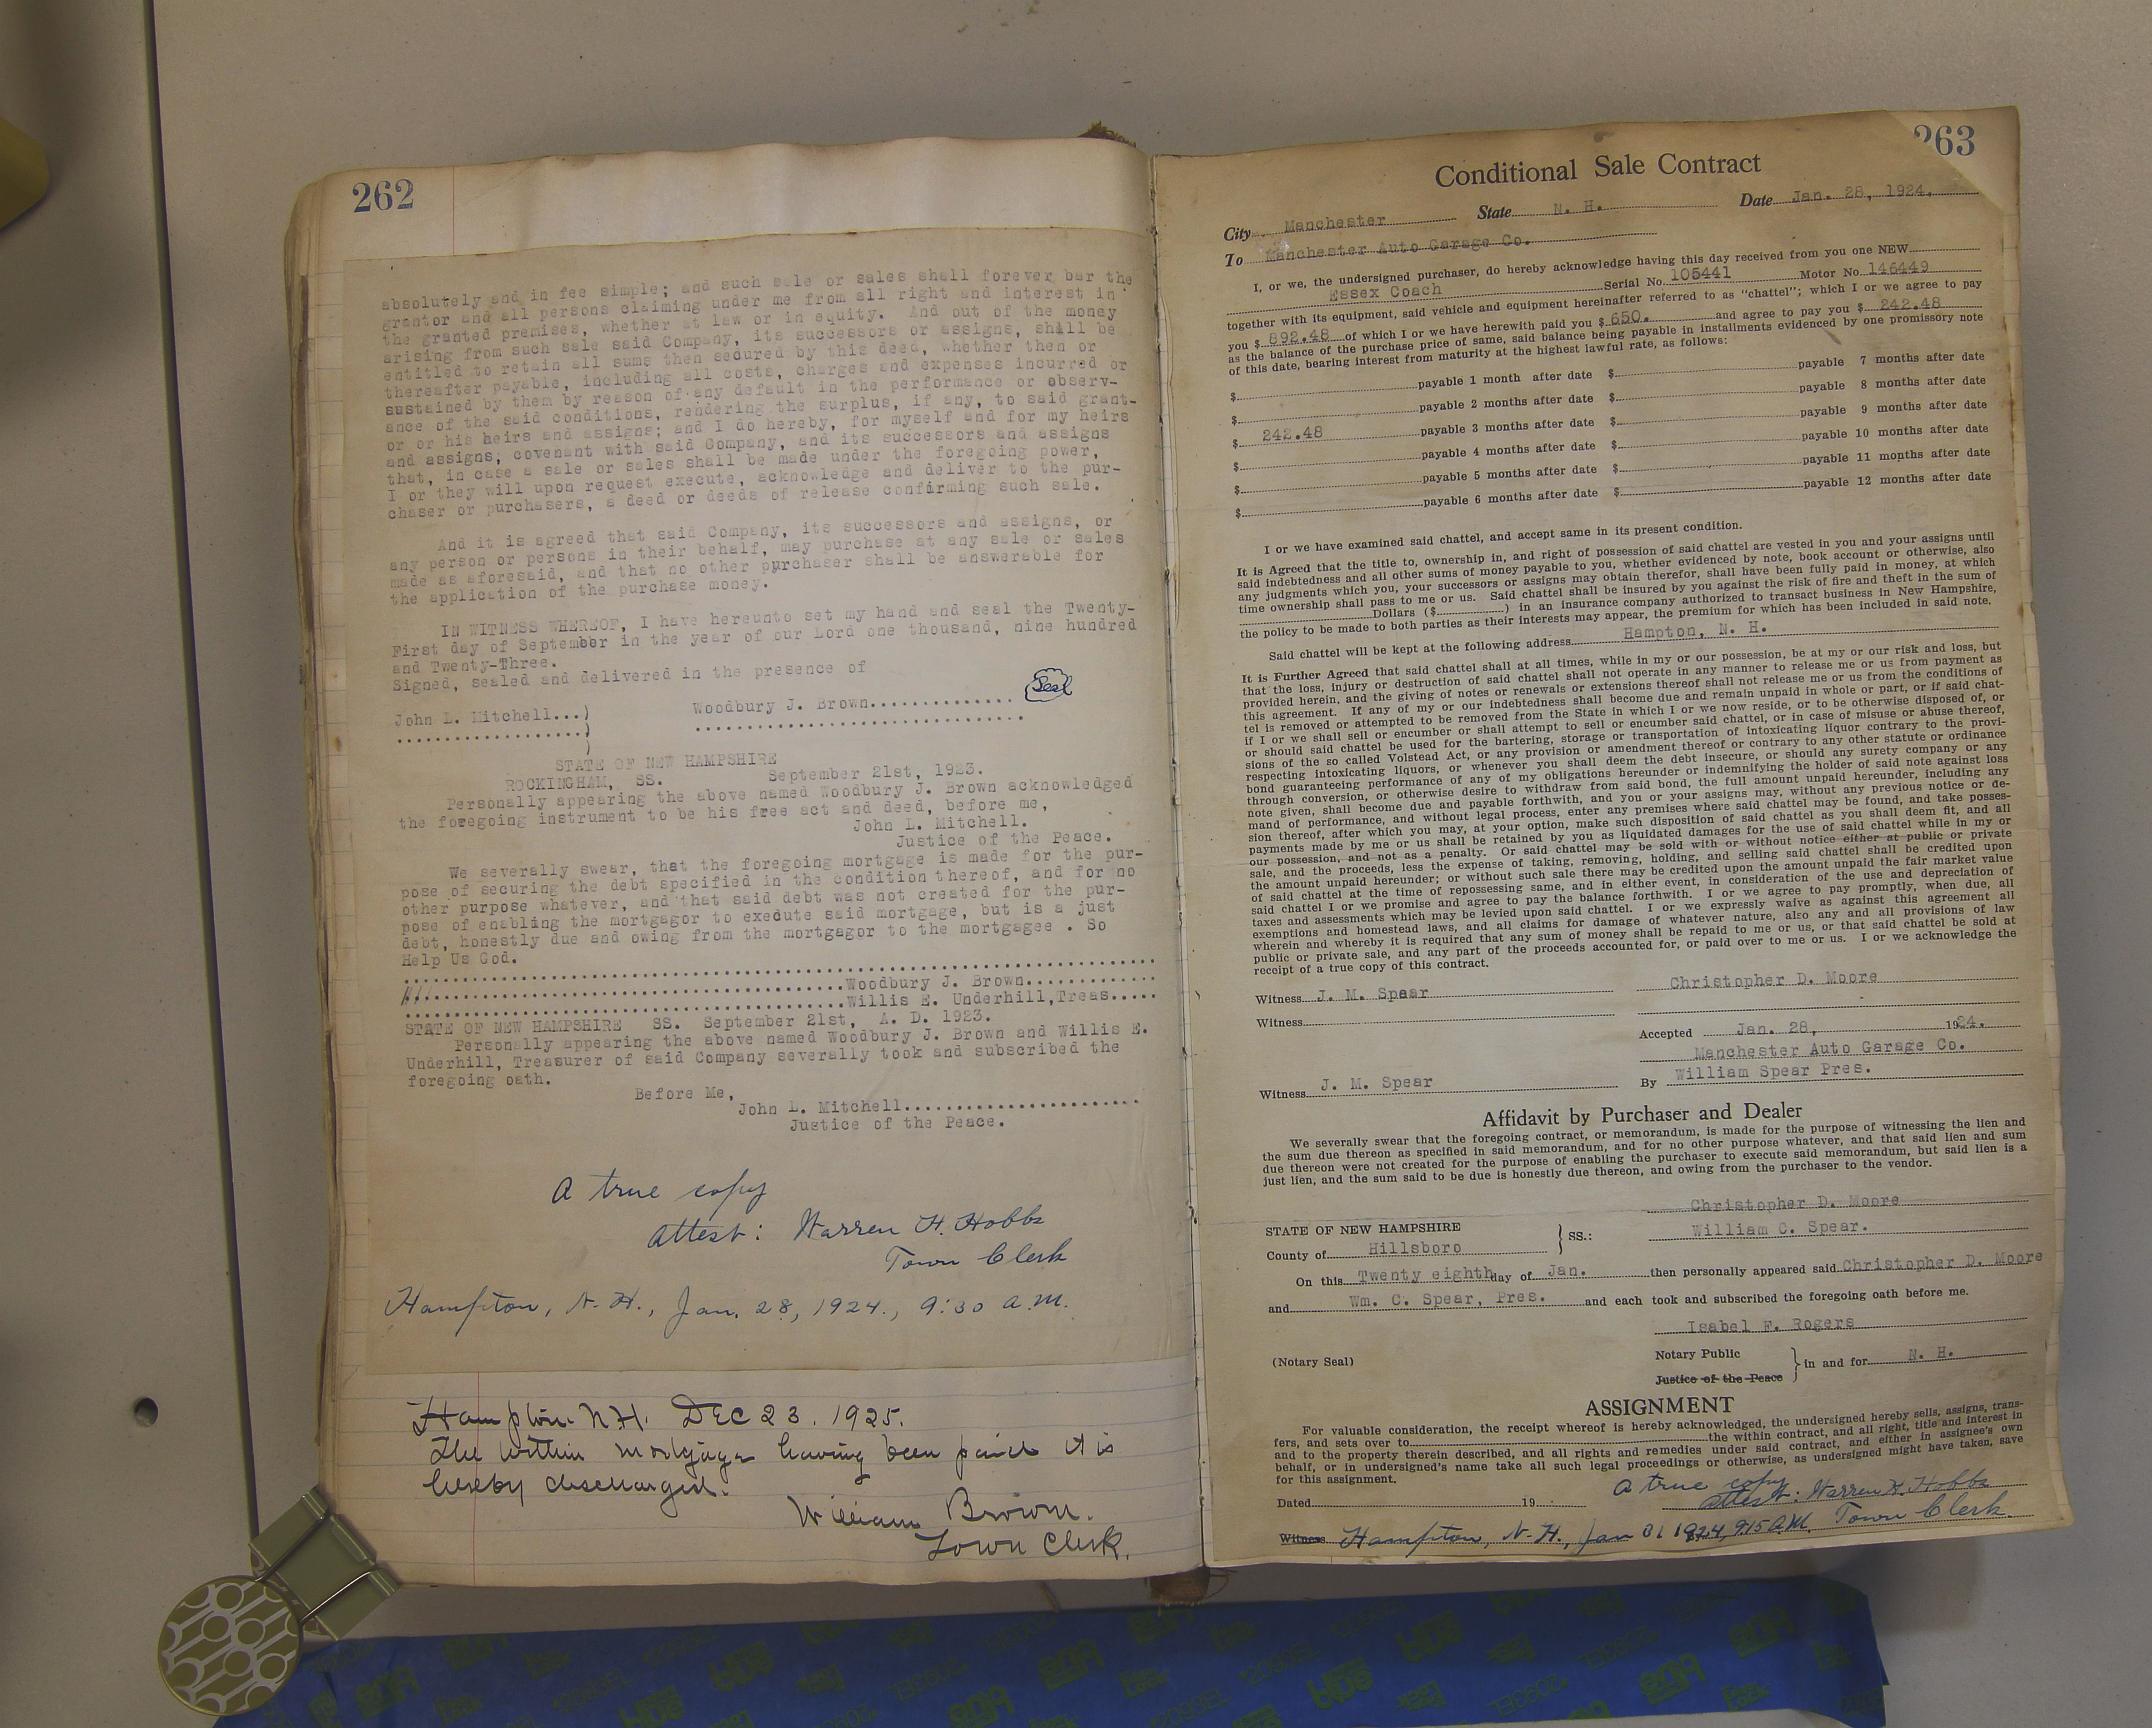 262
absolutely and in fee simple; and such sale or sales shall forever bar the
grantor and all persons claiming under me from all right and interest in
the granted premises, whether at law or in equity. And out of the money
arising from such sale said Company, its successors or assigns, shall be
entitled to retain all sums then secured by this deed, whether then or
thereafter payable, including all costs, charges and expenses incurred or
sustained by them by reason of any default in the performance or observ-
ance of the said conditions, rendering the surplus, if any, to said grant-
or or his heirs and assigns; and I do hereby, for myself and for my heirs
and assigns, covenant with said Company, and its successors and assigns
that, in case a sale or sales shall be made under the foregoing power,
I or they will upon request execute, acknowledge and deliver to the pur-
chaser or purchasers, a deed or deeds of release confirming such sale.
And it is agreed that said Company, its successors and assigns, or
any person or persons in their behalf, may purchase at any sale or sales
made as aforesaid, and that no other purchaser shall be answerable for
the application of the purchase money.
IN WITNESS WHEREOF, I have hereunto set my hand and seal the Twenty-
First day of September in the year of our Lord one thousand, nine hundred
and Twenty-Three.
Signed, sealed and delivered in the presence of
John L. Mitchell...) Woodbury J. Brown.............. Seal
STATE OF NEW HAMPSHIRE
ROCKINGHAM, SS. September 21st, 1923.
Personally appearing the above named Woodbury J. Brown acknowledged
the foregoing instrument to be his free act and deed, before me,
John L. Mitchell.
Justice of the Peace.
We severally swear, that the foregoing mortgage is made for the pur-
pose of securing the debt specified in the condition thereof, and for no
other purpose whatever, and that said debt was not created for the pur-
pose of enabling the mortgagor to execute said mortgage, but is a just
debt, honestly due and owing from the mortgagor to the mortgagee . So
Help Us God.
Woodbury J. Brown............
Willis E. Underhill,Treas.....
STATE OF NEW HAMPSHIRE SS. September 21st, A. D. 1923.
Personally appearing the above named Woodbury J. Brown and Willis E.
Underhill, Treasurer of said Company severally took and subscribed the
foregoing oath.
Before Me,
John L. Mitchell........................
Justice of the Peace.
A true copy
Attest: Warren H. Hobbs
Town Clerk
Hampton, N. H., Jan. 28, 1924., 9:30 A.M.
Hampton N.H. DEC 23. 1925.
The within mortgage having been paid it is
hereby discharged.
William Brown.
Town Clerk.
263
Conditional Sale Contract
City Manchester State N. H. Date Jan. 28, 1924.
To Manchester Auto Garage Co.
I, or we, the undersigned purchaser, do hereby acknowledge having this day received from you one NEW
Essex Coach Serial No. 105441 Motor No. 146449
together with its equipment, said vehicle and equipment hereinafter referred to as "chattel"; which I or we agree to pay
you $ 892.48 of which I or we have herewith paid you $ 650. and agree to pay you $ 242.48
as the balance of the purchase price of same, said balance being payable in installments evidenced by one promissory note
of this date, bearing interest from maturity at the highest lawful rate, as follows:
$ payable 1 month after date $ payable 7 months after date
$ payable 2 months after date $ payable 8 months after date
$ 242.48 payable 3 months after date $ payable 9 months after date
$ payable 4 months after date $ payable 10 months after date
$ payable 5 months after date $ payable 11 months after date
$ payable 6 months after date $ payable 12 months after date
I or we have examined said chattel, and accept same in its present condition.
It is Agreed that the title to, ownership in, and right of possession of said chattel are vested in you and your assigns until
said indebtedness and all other sums of money payable to you, whether evidenced by note, book account or otherwise, also
any judgments which you, your successors or assigns may obtain therefor, shall have been fully paid in money, at which
time ownership shall pass to me or us. Said chattel shall be insured by you against the risk of fire and theft in the sum of
Dollars ($ ) in an insurance company authorized to transact business in New Hampshire,
the policy to be made to both parties as their interests may appear, the premium for which has been included in said note.
Said chattel will be kept at the following address Hampton, N. H.
It is Further Agreed that said chattel shall at all times, while in my or our possession, be at my or our risk and loss, but
that the loss, injury or destruction of said chattel shall not operate in any manner to release me or us from payment as
provided herein, and the giving of notes or renewals or extensions thereof shall not release me or us from the conditions of
this agreement. If any of my or our indebtedness shall become due and remain unpaid in whole or part, or if said chat-
tel is removed or attempted to be removed from the State in which I or we now reside, or to be otherwise disposed of, or
if I or we shall sell or encumber or shall attempt to sell or encumber said chattel, or in case of misuse or abuse thereof,
or should said chattel be used for the bartering, storage or transportation of intoxicating liquor contrary to the provi-
sions of the so called Volstead Act, or any provision or amendment thereof or contrary to any other statute or ordinance
respecting intoxicating liquors, or whenever you shall deem the debt insecure, or should any surety company or any
bond guaranteeing performance of any of my obligations hereunder or indemnifying the holder of said note against loss
through conversion, or otherwise desire to withdraw from said bond, the full amount unpaid hereunder, including any
note given, shall become due and payable forthwith, and you or your assigns may, without any previous notice or de-
mand of performance, and without legal process, enter any premises where said chattel may be found, and take posses-
sion thereof, after which you may, at your option, make such disposition of said chattel as you shall deem fit, and all
payments made by me or us shall be retained by you as liquidated damages for the use of said chattel while in my or
our possession, and not as a penalty. Or said chattel may be sold with or without notice either at public or private
sale, and the proceeds, less the expense of taking, removing, holding, and selling said chattel shall be credited upon
the amount unpaid hereunder; or without such sale there may be credited upon the amount unpaid the fair market value
of said chattel at the time of repossessing same, and in either event, in consideration of the use and depreciation of
said chattel I or we promise and agree to pay the balance forthwith. I or we agree to pay promptly, when due, all
taxes and assessments which may be levied upon said chattel. I or we expressly waive as against this agreement all
exemptions and homestead laws, and all claims for damage of whatever nature, also any and all provisions of law
wherein and whereby it is required that any sum of money shall be repaid to me or us, or that said chattel be sold at
public or private sale, and any part of the proceeds accounted for, or paid over to me or us. I or we acknowledge the
receipt of a true copy of this contract.
Witness J. M. Spear Christopher D. Moore
Witness
Accepted Jan. 28, 1924.
Manchester Auto Garage Co.
Witness J. M. Spear By William Spear Pres.
Affidavit by Purchaser and Dealer
We severally swear that the foregoing contract, or memorandum, is made for the purpose of witnessing the lien and
the sum due thereon as specified in said memorandum, and for no other purpose whatever, and that said lien and sum
due thereon were not created for the purpose of enabling the purchaser to execute said memorandum, but said lien is a
just lien, and the sum said to be due is honestly due thereon, and owing from the purchaser to the vendor.
Christopher D. Moore
STATE OF NEW HAMPSHIRE } SS.: William C. Spear.
County of Hillsboro
On this Twenty eighth day of Jan. then personally appeared said Christopher D. Moore
and Wm. C. Spear, Pres. and each took and subscribed the foregoing oath before me.
Isabel F. Rogers
(Notary Seal) Notary Public } in and for N. H.
Justice of the Peace
ASSIGNMENT
For valuable consideration, the receipt whereof is hereby acknowledged, the undersigned hereby sells, assigns, trans-
fers, and sets over to the within contract, and all right, title and interest in
and to the property therein described, and all rights and remedies under said contract, and either in assignee's own
behalf, or in undersigned's name take all such legal proceedings or otherwise, as undersigned might have taken, save
for this assignment.
A true copy
Dated 19 attest: Warren H. Hobbs
Witness Hampton, N. H., Jan 31 1924, 9:15 A.M. Town Clerk.